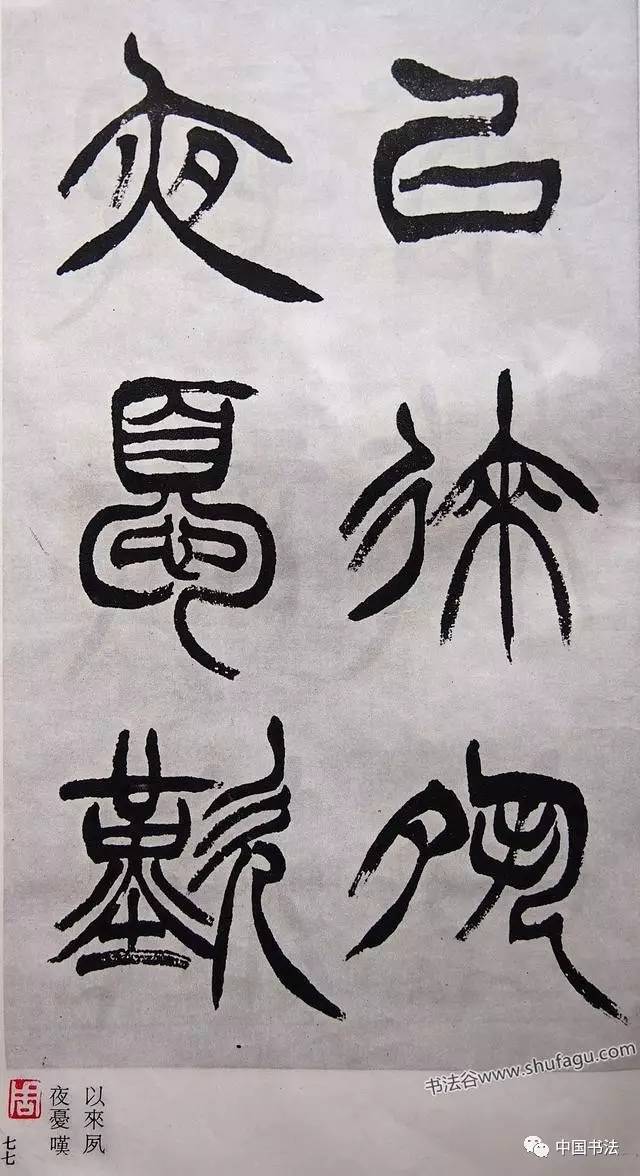 以來夙
夜憂嘆
以來夙
夜憂嘆
七七
书法谷www.shufagu.com
中国书法